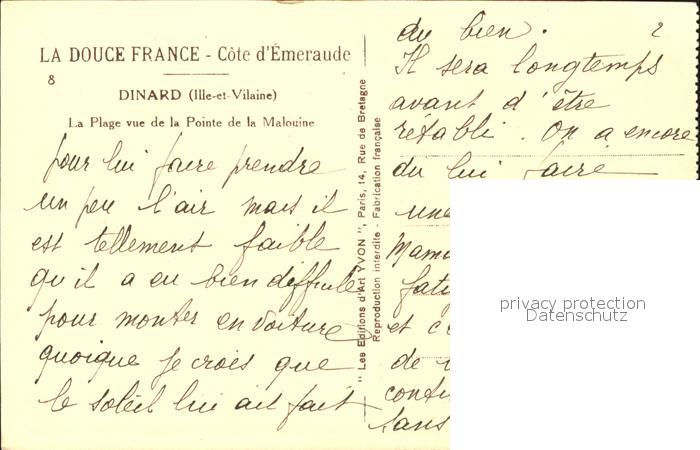 LA DOUCE FRANCE - Côte d'Émeraude
8
DINARD (Ille-et-Vilaine)
La Plage vue de la Pointe de la Malouine
pour lui faire prendre
un peu l'air mais il
est tellement faible
qu'il a eu bien difficile
pour monter en voiture
quoique je crois que
le soleil lui ait fait
" Les Editions d'Art YVON ", Paris, 14, Rue de Bretagne
Reproduction interdite - Fabrication française
2
du bien.
Il sera longtemps
avant d'être
rétabli. On a encore
du lui faire
une
et
de
sans
privacy protection
Datenschutz